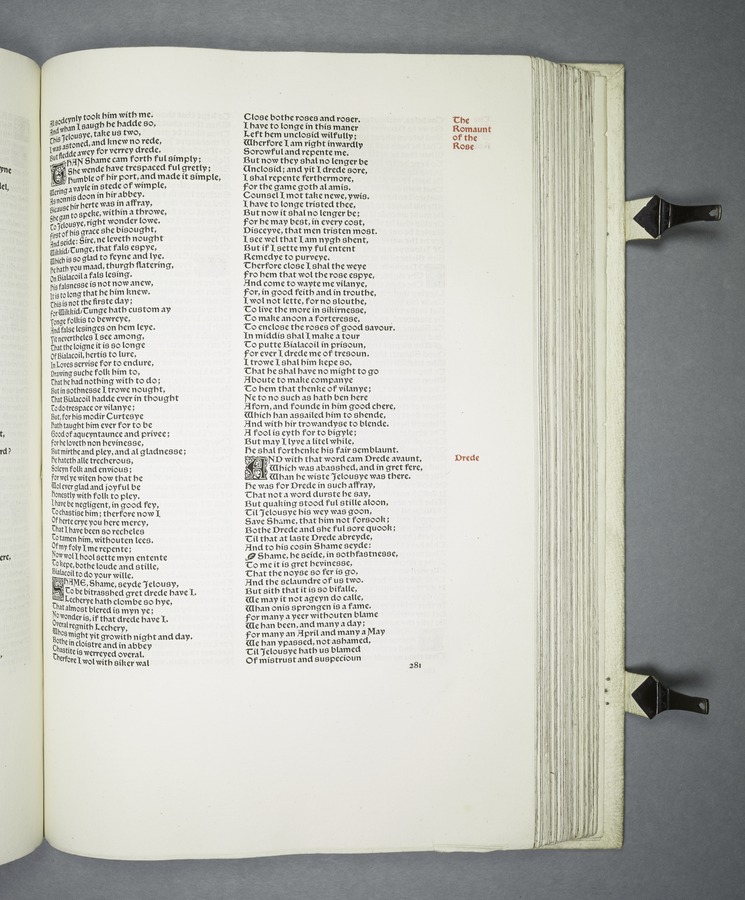 yne
lel,
t,
rd?
ere,
Al sodeynly took him with me.
And whan I saugh he hadde so,
This Jelousye, take us two,
I was astoned, and knew no rede,
But fledde awey for verrey drede.
THAN Shame cam forth ful simply;
She wende have trespaced ful gretly;
Humble of hir port, and made it simple,
Wering a vayle in stede of wimple,
As nonnis doon in hir abbey.
Bicause hir herte was in affray,
She gan to speke, within a throwe,
To Jelousye, right wonder lowe.
First of his grace she bisought,
And seide: Sire, ne leveth nought
Wikkid/Tunge, that fals espye,
Which is so glad to feyne and lye.
He hath you maad, thurgh flatering,
On Bialacoil a fals lesing.
His falsnesse is not now anew,
It is to long that he him knew.
This is not the firste day;
For Wikkid/Tunge hath custom ay
Yonge folkis to bewreye,
And false lesinges on hem leye.
Yit nevertheles I see among,
That the loigne it is so longe
Of Bialacoil, hertis to lure,
In Loves servise for to endure,
Drawing suche folk him to,
That he had nothing with to do;
But in sothnesse I trowe nought,
That Bialacoil hadde ever in thought
To do trespace or vilanye;
But, for his modir Curtesye
Hath taught him ever for to be
Good of aqueyntaunce and privee;
For he loveth non hevinesse,
But mirthe and pley, and al gladnesse;
He hateth alle trecherous,
Soleyn folk and envious;
For wel ye witen how that he
Wol ever glad and joyful be
Honestly with folk to pley.
I have be negligent, in good fey,
To chastise him; therfore now I
Of herte crye you here mercy,
That I have been so recheles
To tamen him, withouten lees.
Of my foly I me repente;
Now wol I hool sette myn entente
To kepe, bothe loude and stille,
Bialacoil to do your wille.
SHAME, Shame, seyde Jelousy,
To be bitrasshed gret drede have I.
Lecherye hath clombe so hye,
That almost blered is myn ye;
No wonder is, if that drede have I.
Overal regnith Lechery,
Whos might yit growith night and day.
Bothe in cloistre and in abbey
Chastite is werreyed overal.
Therfore I wol with siker wal
Close bothe roses and roser.
I have to longe in this maner
Left hem unclosid wilfully;
Wherfore I am right inwardly
Sorowful and repente me.
But now they shal no lenger be
Unclosid; and yit I drede sore,
I shal repente ferthermore,
For the game goth al amis.
Counsel I mot take newe, ywis.
I have to longe tristed thee,
But now it shal no lenger be;
For he may best, in every cost,
Disceyve, that men tristen most.
I see wel that I am nygh shent,
But if I sette my ful entent
Remedye to purveye.
Therfore close I shal the weye
Fro hem that wol the rose espye,
And come to wayte me vilanye,
For, in good feith and in trouthe,
I wol not lette, for no slouthe,
To live the more in sikirnesse,
To make anoon a forteresse,
To enclose the roses of good savour.
In middis shal I make a tour
To putte Bialacoil in prisoun,
For ever I drede me of tresoun.
I trowe I shal him kepe so,
That he shal have no might to go
Aboute to make companye
To hem that thenke of vilanye;
Ne to no such as hath ben here
Aforn, and founde in him good chere,
Which han assailed him to shende,
And with hir trowandyse to blende.
A fool is eyth for to bigyle;
But may I lyve a litel while,
He shal forthenke his fair semblaunt.
AND with that word cam Drede avaunt,
Which was abasshed, and in gret fere,
Whan he wiste Jelousye was there.
He was for Drede in such affray,
That not a word durste he say,
But quaking stood ful stille aloon,
Til Jelousye his wey was goon,
Save Shame, that him not forsook;
Bothe Drede and she ful sore quook;
Til that at laste Drede abreyde,
And to his cosin Shame seyde:
Shame, he seide, in sothfastnesse,
To me it is gret hevinesse,
That the noyse so fer is go,
And the sclaundre of us two.
But sith that it is so bifalle,
We may it not ageyn do calle,
Whan onis sprongen is a fame.
For many a yeer withouten blame
We han been, and many a day;
For many an April and many a May
We han ypassed, not ashamed,
Til Jelousye hath us blamed
Of mistrust and suspecioun
281
The
Romaunt
of the
Rose
Drede